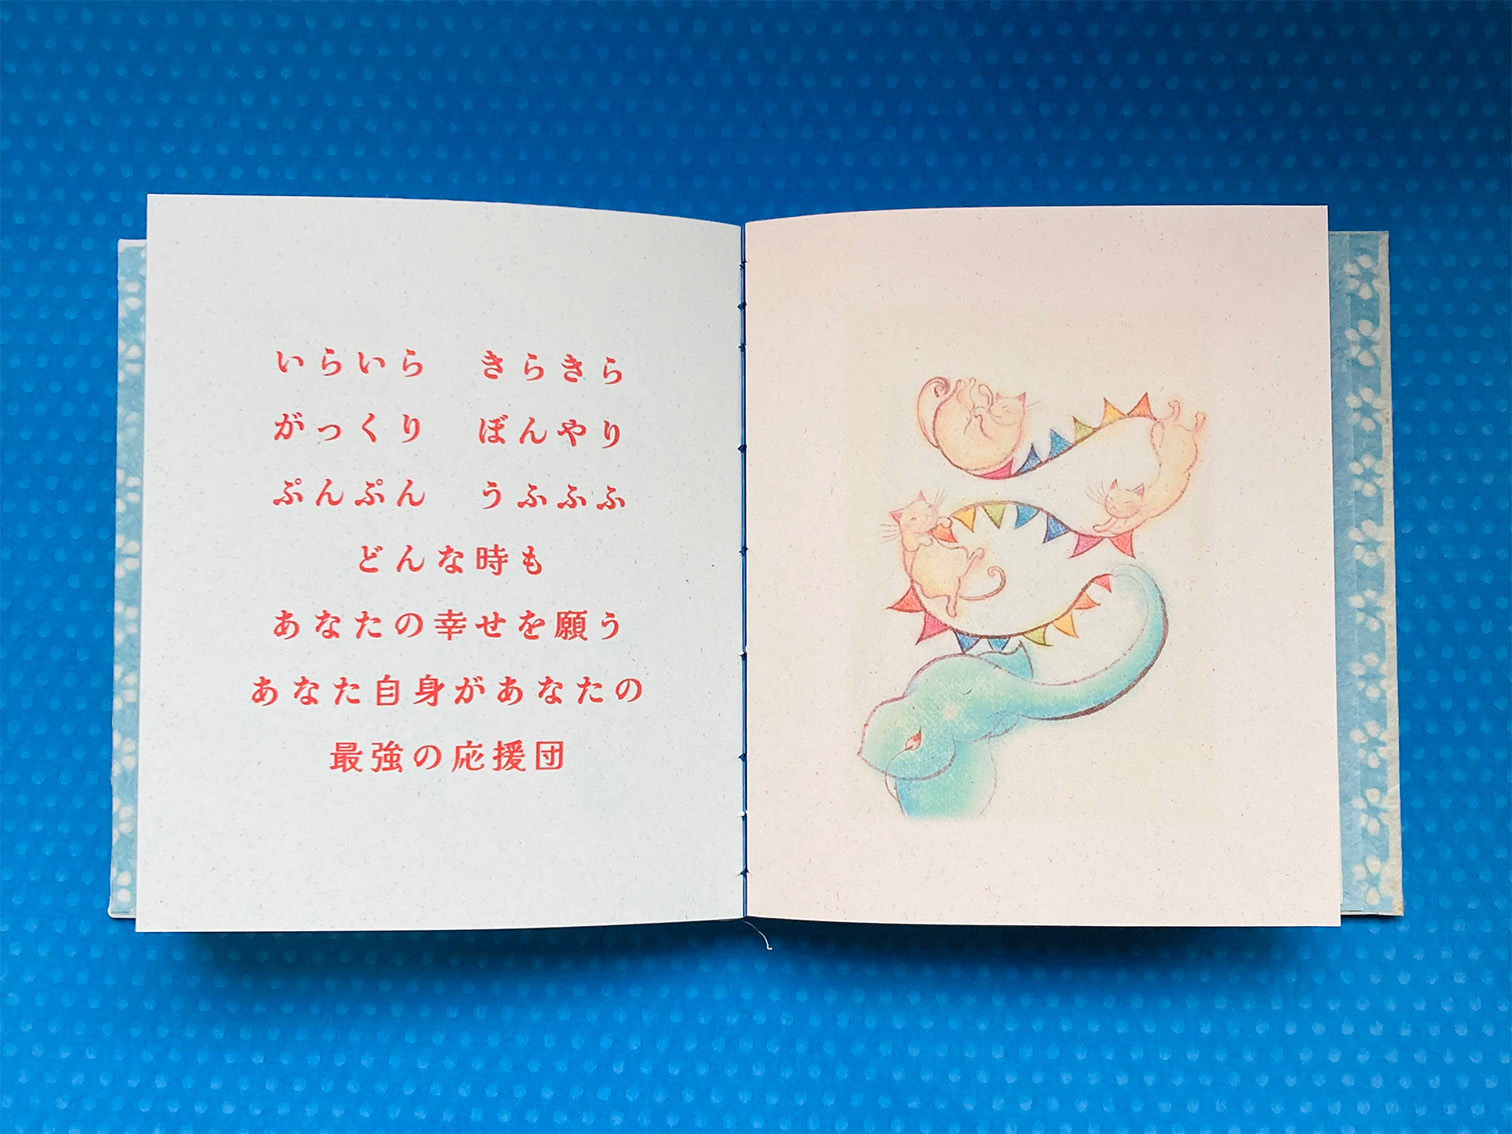 いらいら　きらきら
がっくり　ぼんやり
ぷんぷん　うふふふ
どんな時も
あなたの幸せを願う
あなた自身があなたの
最強の応援団